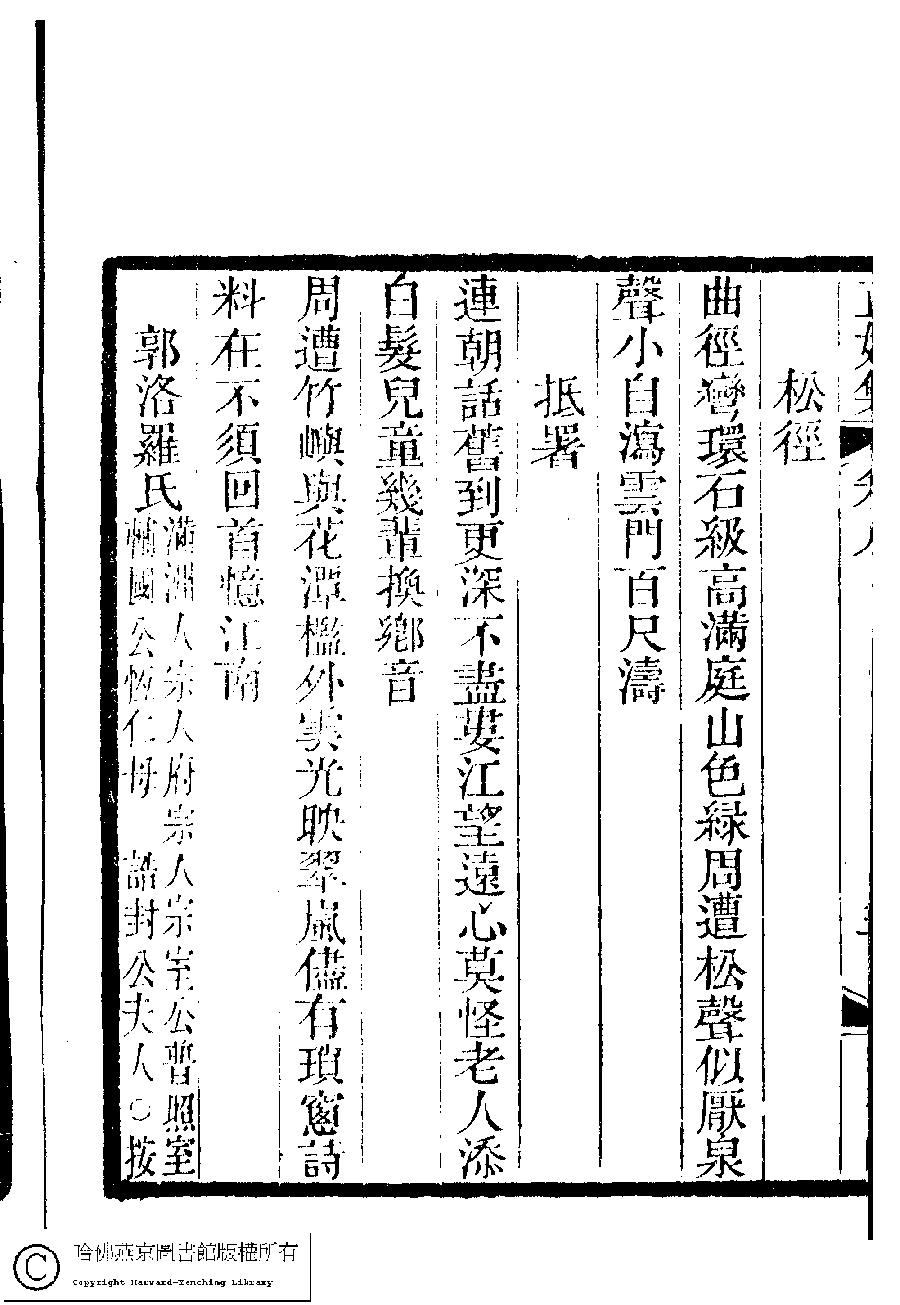 松徑
曲徑彎環石級高滿庭山色綠周遭松聲似厭泉
聲小自瀉雲門百尺濤
抵署
連朝話舊到更深不盡婁江望遠心莫怪老人添
白髮兒童幾輩換鄉音
周遭竹嶼與花潭檻外雲光映翠嵐儘有瑣窻詩
料在不須回首憶江南
郭洛羅氏
滿洲人宗人府宗人宗室公普照室
輔國公恆仁母 誥封公夫人○按
哈佛燕京圖書館版權所有
Copyright Harvard-Yenching Library